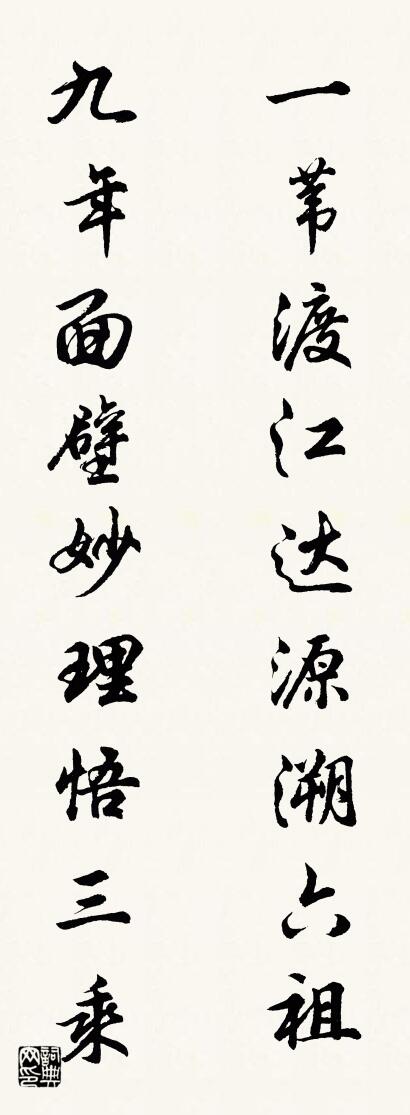 一苇渡江达源溯六祖
九年面壁妙理悟三乘
詞典网印